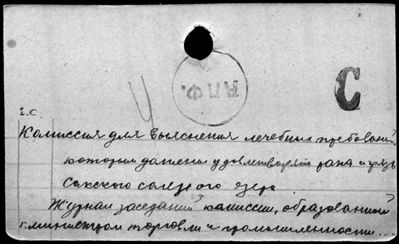 А.П.Ф.
С
г.С.
Комиссия для выяснения лечебных требований,
которым должны удовлетворять рапа и грязь
Сакского соленого озера.
Журнал заседаний комиссии, образованной
г. министром торговли и промышленности...